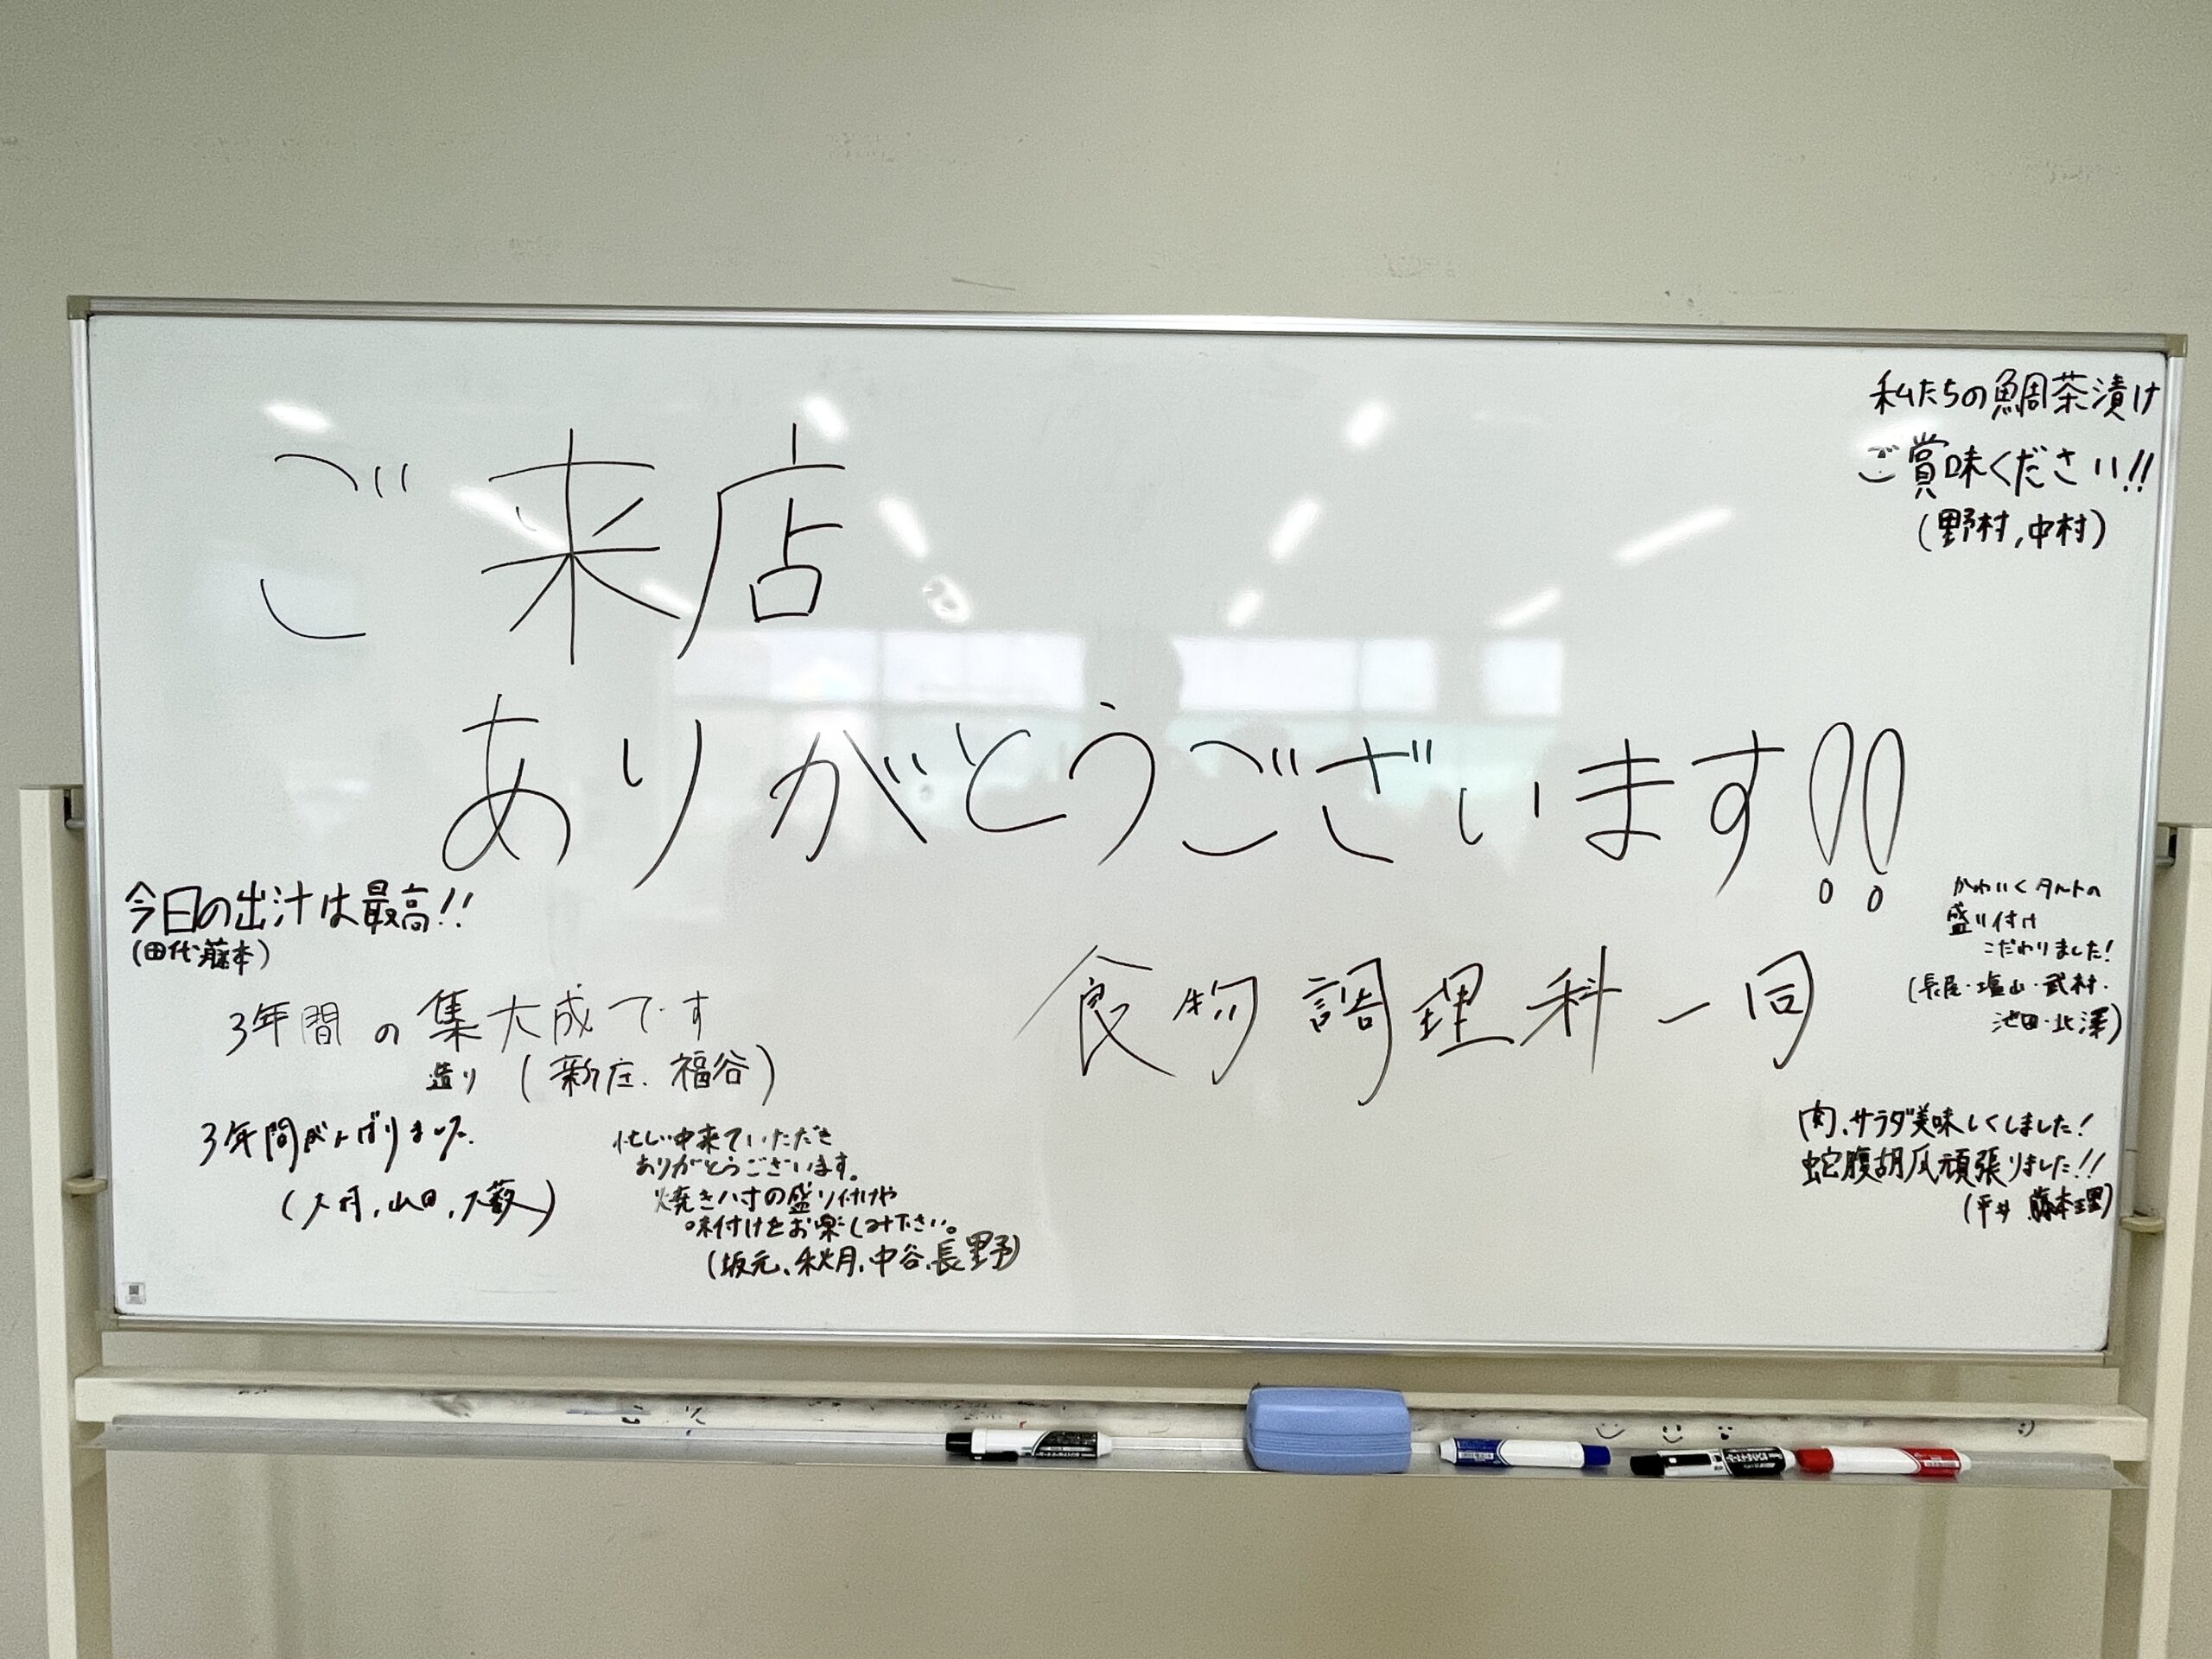 ご来店
ありがとうございます!!
食物調理科一同
私たちの鯛茶漬け
ご賞味ください!!
(野村,中村)
今日の出汁は最高!!
(田代・藤本)
3年間の集大成です
造り (新庄、福谷)
3年間がんばりました。
(大村,山田,大藪)
忙しい中来ていただき
ありがとうございます。
焼き八寸の盛り付けや
味付けをお楽しみ下さい。
(坂元、秋月、中谷、長野)
かわいくタルトの
盛り付け
こだわりました!
(長尾・塩山・武村・
池田・北澤)
肉、サラダ美味しくしました!
蛇腹胡瓜頑張りました!!
(平井、藤本理)